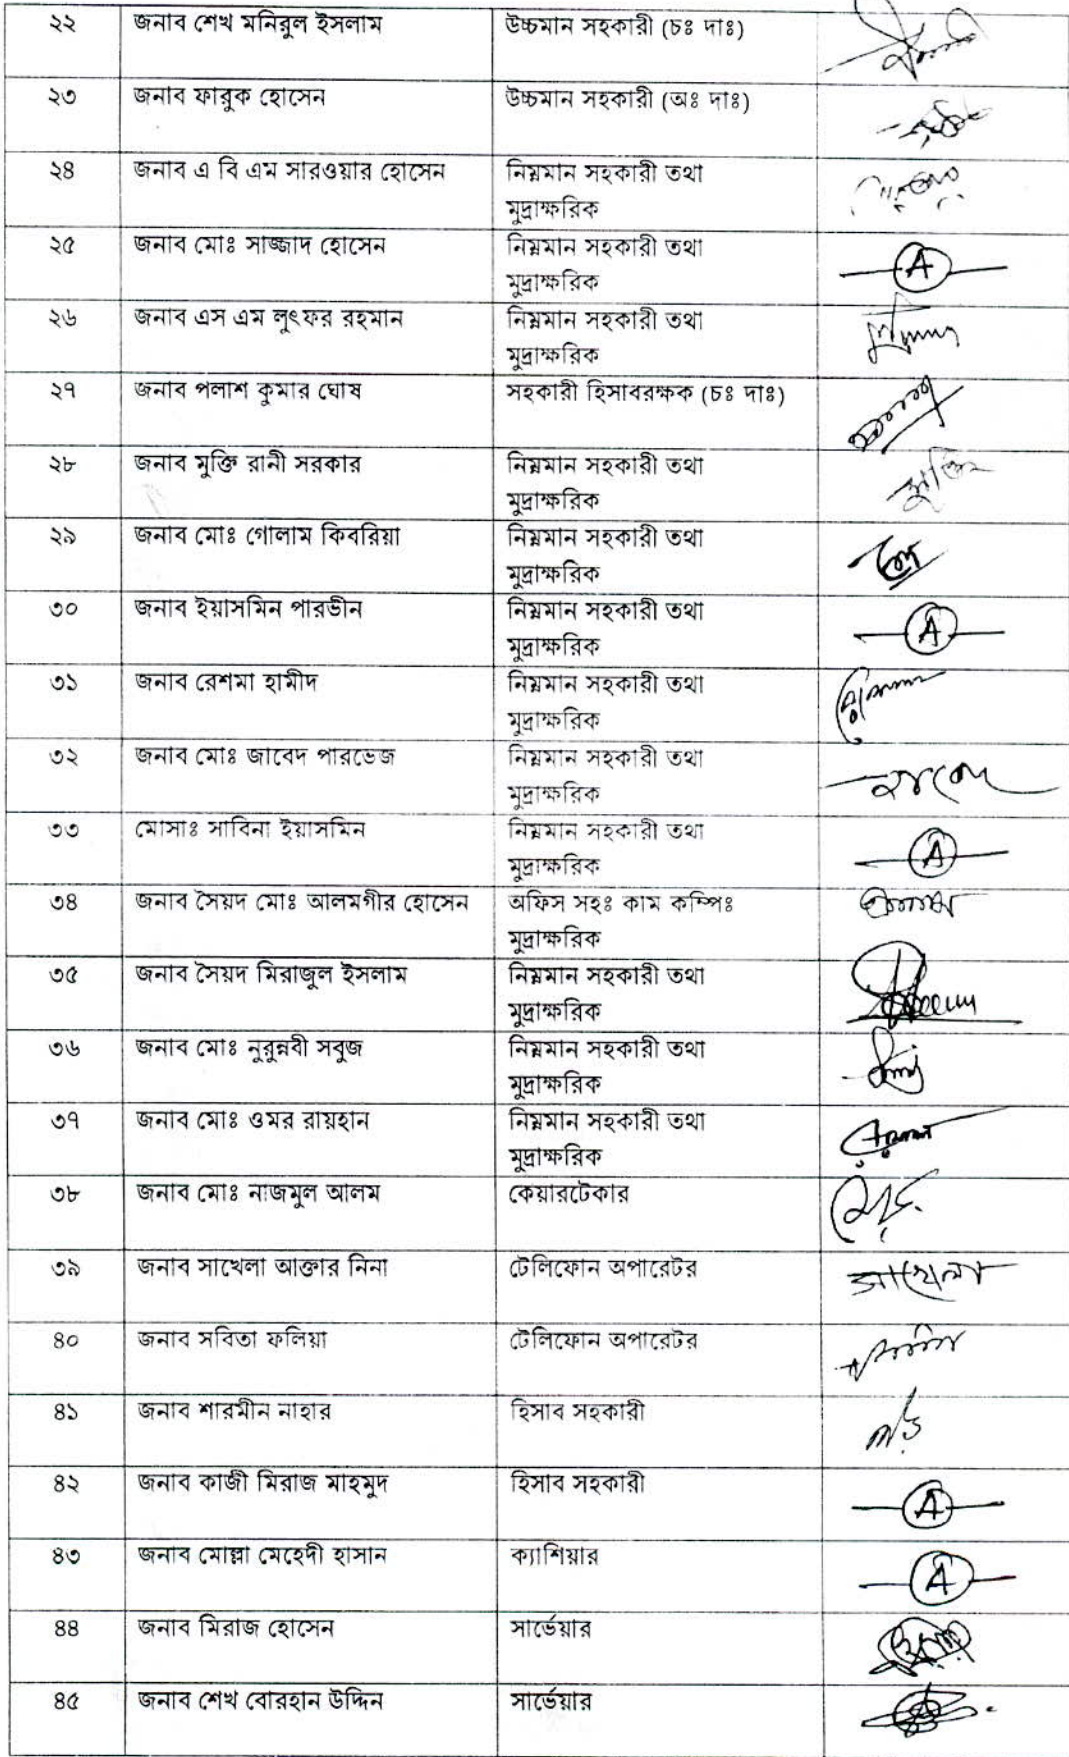 ২২ জনাব শেখ মনিরুল ইসলাম উচ্চমান সহকারী (চঃ দাঃ)
২৩ জনাব ফারুক হোসেন উচ্চমান সহকারী (অঃ দাঃ)
২৪ জনাব এ বি এম সারওয়ার হোসেন নিম্নমান সহকারী তথা
মুদ্রাক্ষরিক
২৫ জনাব মোঃ সাজ্জাদ হোসেন নিম্নমান সহকারী তথা A
মুদ্রাক্ষরিক
২৬ জনাব এস এম লুৎফর রহমান নিম্নমান সহকারী তথা
মুদ্রাক্ষরিক
২৭ জনাব পলাশ কুমার ঘোষ সহকারী হিসাবরক্ষক (চঃ দাঃ)
২৮ জনাব মুক্তি রানী সরকার নিম্নমান সহকারী তথা মুক্তি
মুদ্রাক্ষরিক
২৯ জনাব মোঃ গোলাম কিবরিয়া নিম্নমান সহকারী তথা
মুদ্রাক্ষরিক
৩০ জনাব ইয়াসমিন পারভীন নিম্নমান সহকারী তথা A
মুদ্রাক্ষরিক
৩১ জনাব রেশমা হামীদ নিম্নমান সহকারী তথা
মুদ্রাক্ষরিক
৩২ জনাব মোঃ জাবেদ পারভেজ নিম্নমান সহকারী তথা
মুদ্রাক্ষরিক
৩৩ মোসাঃ সাবিনা ইয়াসমিন নিম্নমান সহকারী তথা A
মুদ্রাক্ষরিক
৩৪ জনাব সৈয়দ মোঃ আলমগীর হোসেন অফিস সহঃ কাম কম্পিঃ
মুদ্রাক্ষরিক
৩৫ জনাব সৈয়দ মিরাজুল ইসলাম নিম্নমান সহকারী তথা
মুদ্রাক্ষরিক
৩৬ জনাব মোঃ নুরুন্নবী সবুজ নিম্নমান সহকারী তথা
মুদ্রাক্ষরিক
৩৭ জনাব মোঃ ওমর রায়হান নিম্নমান সহকারী তথা
মুদ্রাক্ষরিক
৩৮ জনাব মোঃ নাজমুল আলম কেয়ারটেকার
৩৯ জনাব সাখেলা আক্তার নিনা টেলিফোন অপারেটর সাখেলা
৪০ জনাব সবিতা ফলিয়া টেলিফোন অপারেটর
৪১ জনাব শারমীন নাহার হিসাব সহকারী
৪২ জনাব কাজী মিরাজ মাহমুদ হিসাব সহকারী A
৪৩ জনাব মোল্লা মেহেদী হাসান ক্যাশিয়ার A
৪৪ জনাব মিরাজ হোসেন সার্ভেয়ার
৪৫ জনাব শেখ বোরহান উদ্দিন সার্ভেয়ার